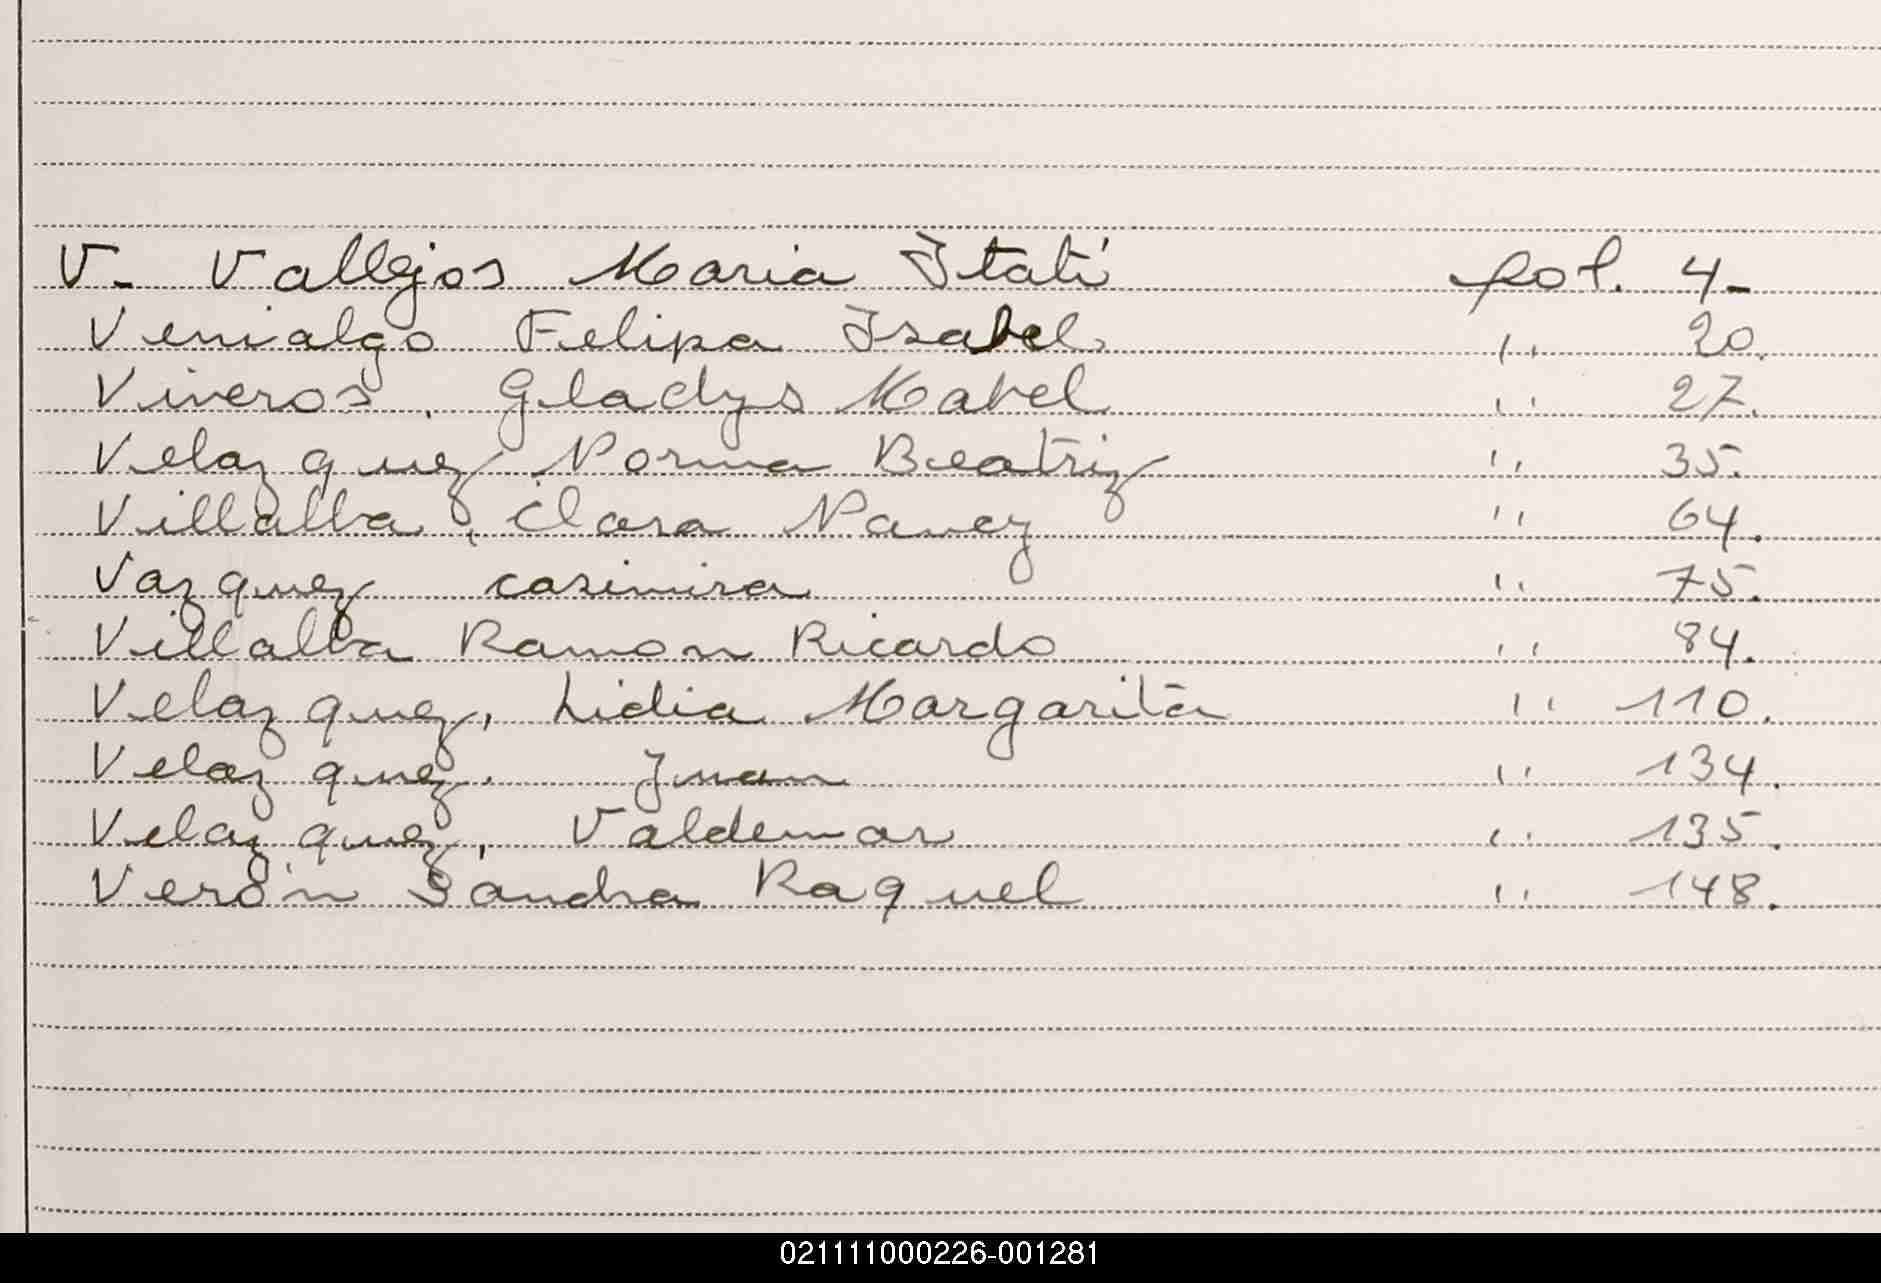 V- Vallejos Maria Itatí fol. 4-
Venialgo Felipa Isabel '' 20.
Viveros, Gladys Mabel '' 27.
Velazquez Norma Beatriz '' 35.
Villalba, Clara Nancy '' 64.
Vazquez casimira '' 75.
Villalba Ramon Ricardo '' 84.
Velazquez, Lidia Margarita '' 110.
Velazquez. Juan '' 134.
Velazquez, Valdemar '' 135.
Verón Sandra Raquel '' 148.
021111000226-001281